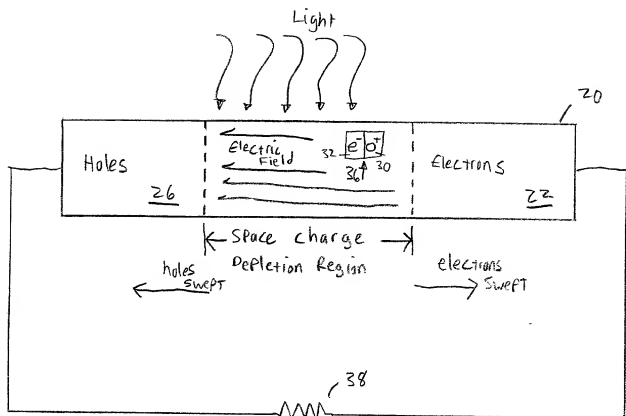 Light
20
Holes
Electric
Field
32
e⁻ o⁺
30
36
Electrons
26
22
Space charge
Depletion Region
holes
swept
electrons
swept
38